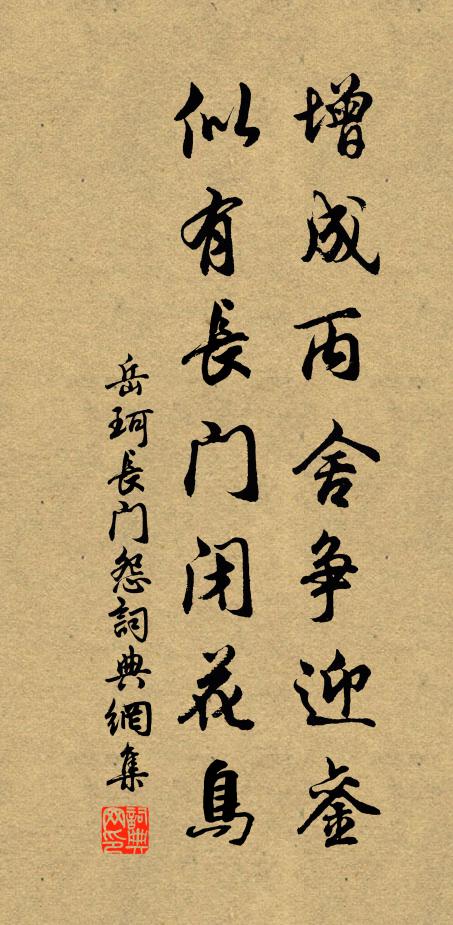 增成丙舍争迎銮
似有長门闭花鳥
岳珂長门怨詞典網集
詞典网印